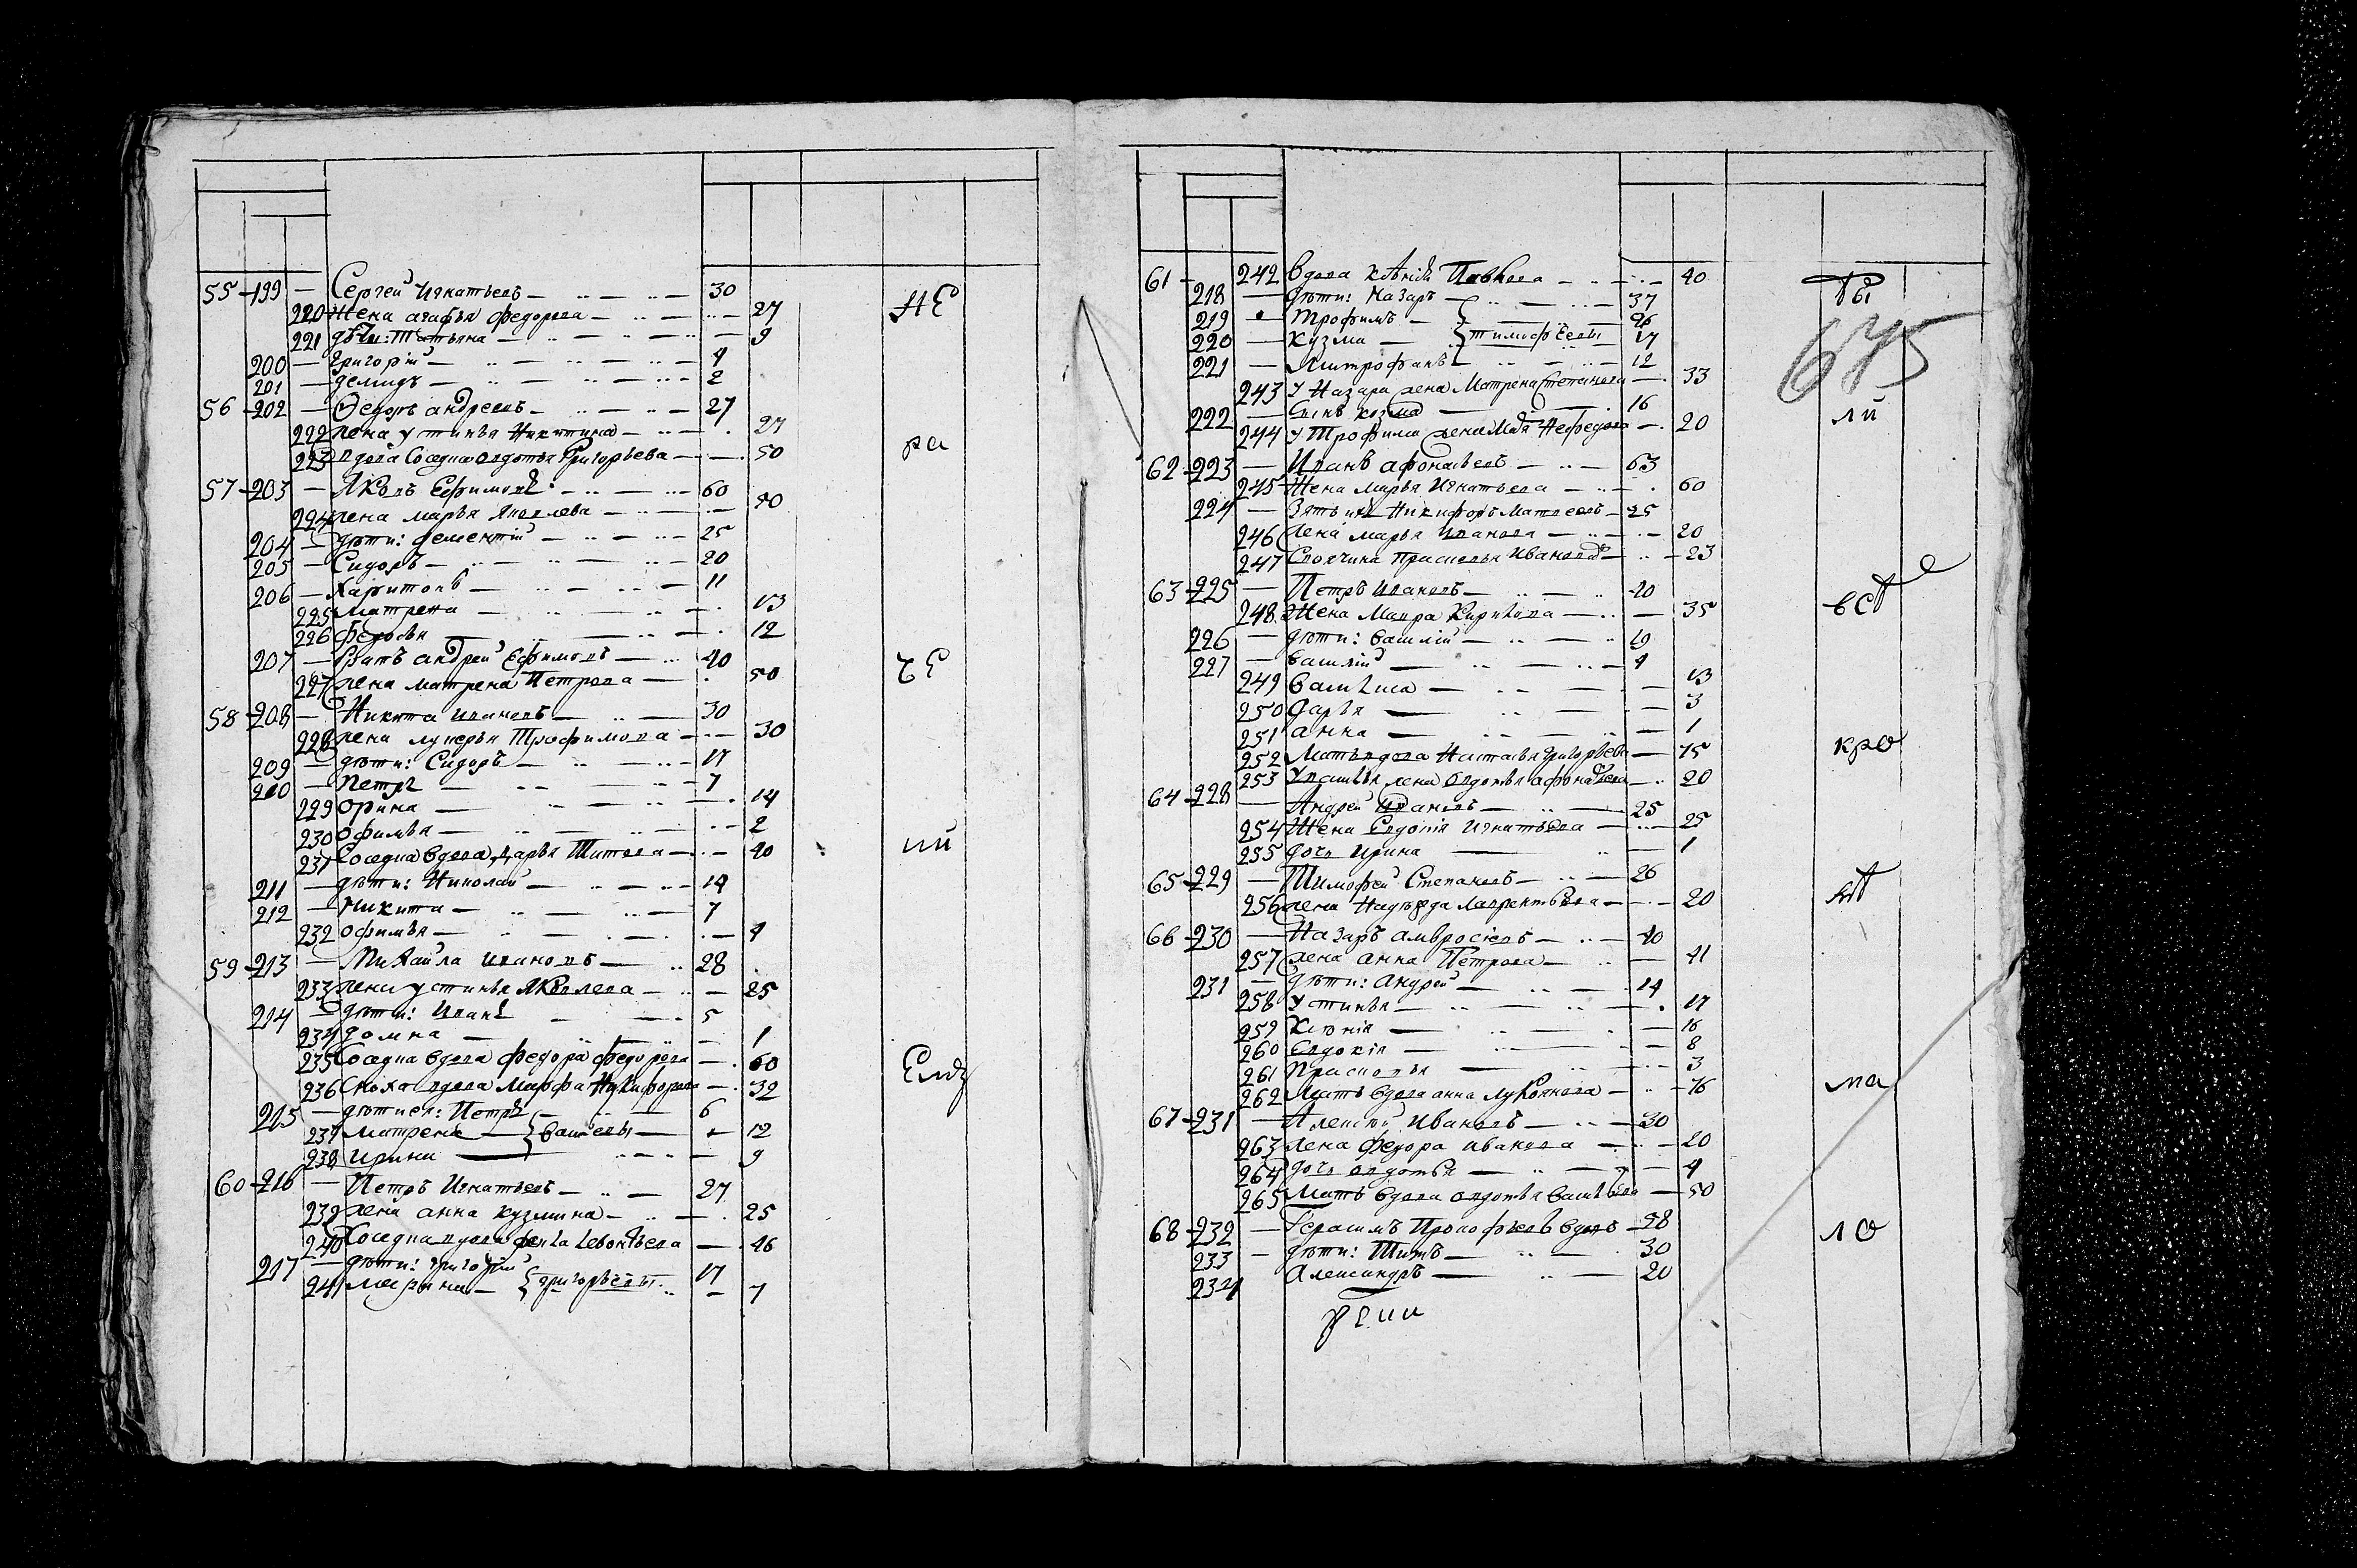 55 - 199 — Сергей Игнатьевъ — 30
220 жена агафья федорова — 27
221 дѣти: Татьяна — 9
200 — григорій — 4
201 — демидъ — 2
НЕ
56 - 202 — Ѳедоръ андреевъ — 27
222 жена устинья Никитина — 27
223 вдова Соседка авдотья Григорьева — 50
ра
57 - 203 — Яковъ Ефимовъ — 60
224 жена марья Яковлева — 50
204 — дѣти: дементій — 25
205 — Сидоръ — 20
206 — Харитонъ — 11
225 матрена — 13
226 федосья — 12
207 — братъ андрей Ефимовъ — 40
227 жена матрена Петрова — 50
58 - 208 — Никита ивановъ — 30
228 жена лукерья Трофимова — 30
209 — дѣти: Сидоръ — 17
210 — Петръ — 7
229 орина — 14
230 офимья — 2
231 Соседка вдова дарья Титова — 40
211 — дѣти: Николай — 14
212 — Никита — 7
232 офимья — 4
59 - 213 — Михайла ивановъ — 28
233 жена устинья Яковлева — 25
214 — дѣти: иванъ — 5
234 домна — 1
235 Соседка вдова федора федорова — 60
236 Сноха вдова Марфа Никифорова — 32
215 — дѣти ея: Петръ — 6
237 матрена — 12
238 ирина — 9
60 - 216 — Петръ Игнатьевъ — 27
239 жена анна кузмина — 25
240 Соседка вдова левонтьева — 46
217 — дѣти: григорій — 17
241 марина — григорьевы — 7
61 - 242 вдова — 40
218 — дѣти: Назаръ — 37
219 — трофимъ — 26
220 — кузма — тимофѣевы 17
221 — митрофанъ — 12
243 у Назара жена Матрена Степанова — 33
222 — Сынъ козма — 16
244 у Трофима жена Нефедова — 20
675
ли
62 - 223 — Иванъ афонасьевъ — 63
245 Жена марья Игнатьева — 60
224 — Зять ихъ Никифоръ Матвеевъ — 25
246 жена марья иванова — 20
247 Своячина прасковья Иванова — 23
63 - 225 — Петръ ивановъ — 40
248 Жена Мавра Кирилова — 35
226 — дѣти: василій — 19
227 — василій — 4
249 василиса — 13
250 дарья — 3
251 анна — 1
252 Мать вдова Настасья григорьева — 75
253 у василья жена авдотья афонасьева — 20
кро
64 - 228 — Андрей Ивановъ — 25
254 Жена Евдокія игнатьева — 25
255 дочь ирина — 1
65 - 229 — Тимофей Степановъ — 26
256 жена Надѣжда лаврентьева — 20
66 - 230 — Назаръ амвросіевъ — 40
257 жена анна Петрова — 41
231 — дѣти: андрей — 14
258 устинья — 17
259 Ксенія — 16
260 Евдокія — 8
261 прасковья — 3
262 мать вдова анна лукьянова — 76
67 - 231 — Алексѣй Ивановъ — 30
263 жена федора иванова — 20
264 дочь авдотья — 4
265 Мать вдова авдотья васильева — 50
68 - 232 — Герасимъ Прокофьевъ вдовъ — 58
233 — дѣти: Титъ — 30
234 александръ — 20
ло